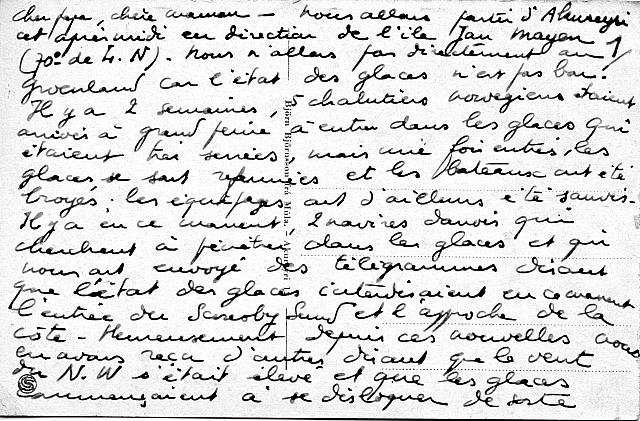 cher papa, chère maman - nous allons partir d'Akureyri
cet après midi en direction de l'île Jan Mayen
(70° de L.N). nous n'allons pas directement au
Groenland car l'état des glaces n'est pas bon.
Il y a 2 semaines, 5 chalutiers norvégiens étaient
arrivés à grand peine à entrer dans les glaces qui
étaient très serrées, mais une fois entrés, les
glaces se sont refermées et les bateaux ont été
broyés; les équipages ont d'ailleurs été sauvés.
Il y a en ce moment, 2 navires danois qui
cherchent à pénétrer dans les glaces et qui
nous ont envoyé des télégrammes disant
que l'état des glaces interdisaient en ce moment
l'entrée du Scoresby Sund et l'approche de la
côte - Heureusement depuis ces nouvelles nous
en avons reçu d'autres disant que le vent
du N.W s'était élevé et que les glaces
commençaient à se disloquer de sorte
Björn Björnsson frá Múla. Akureyri